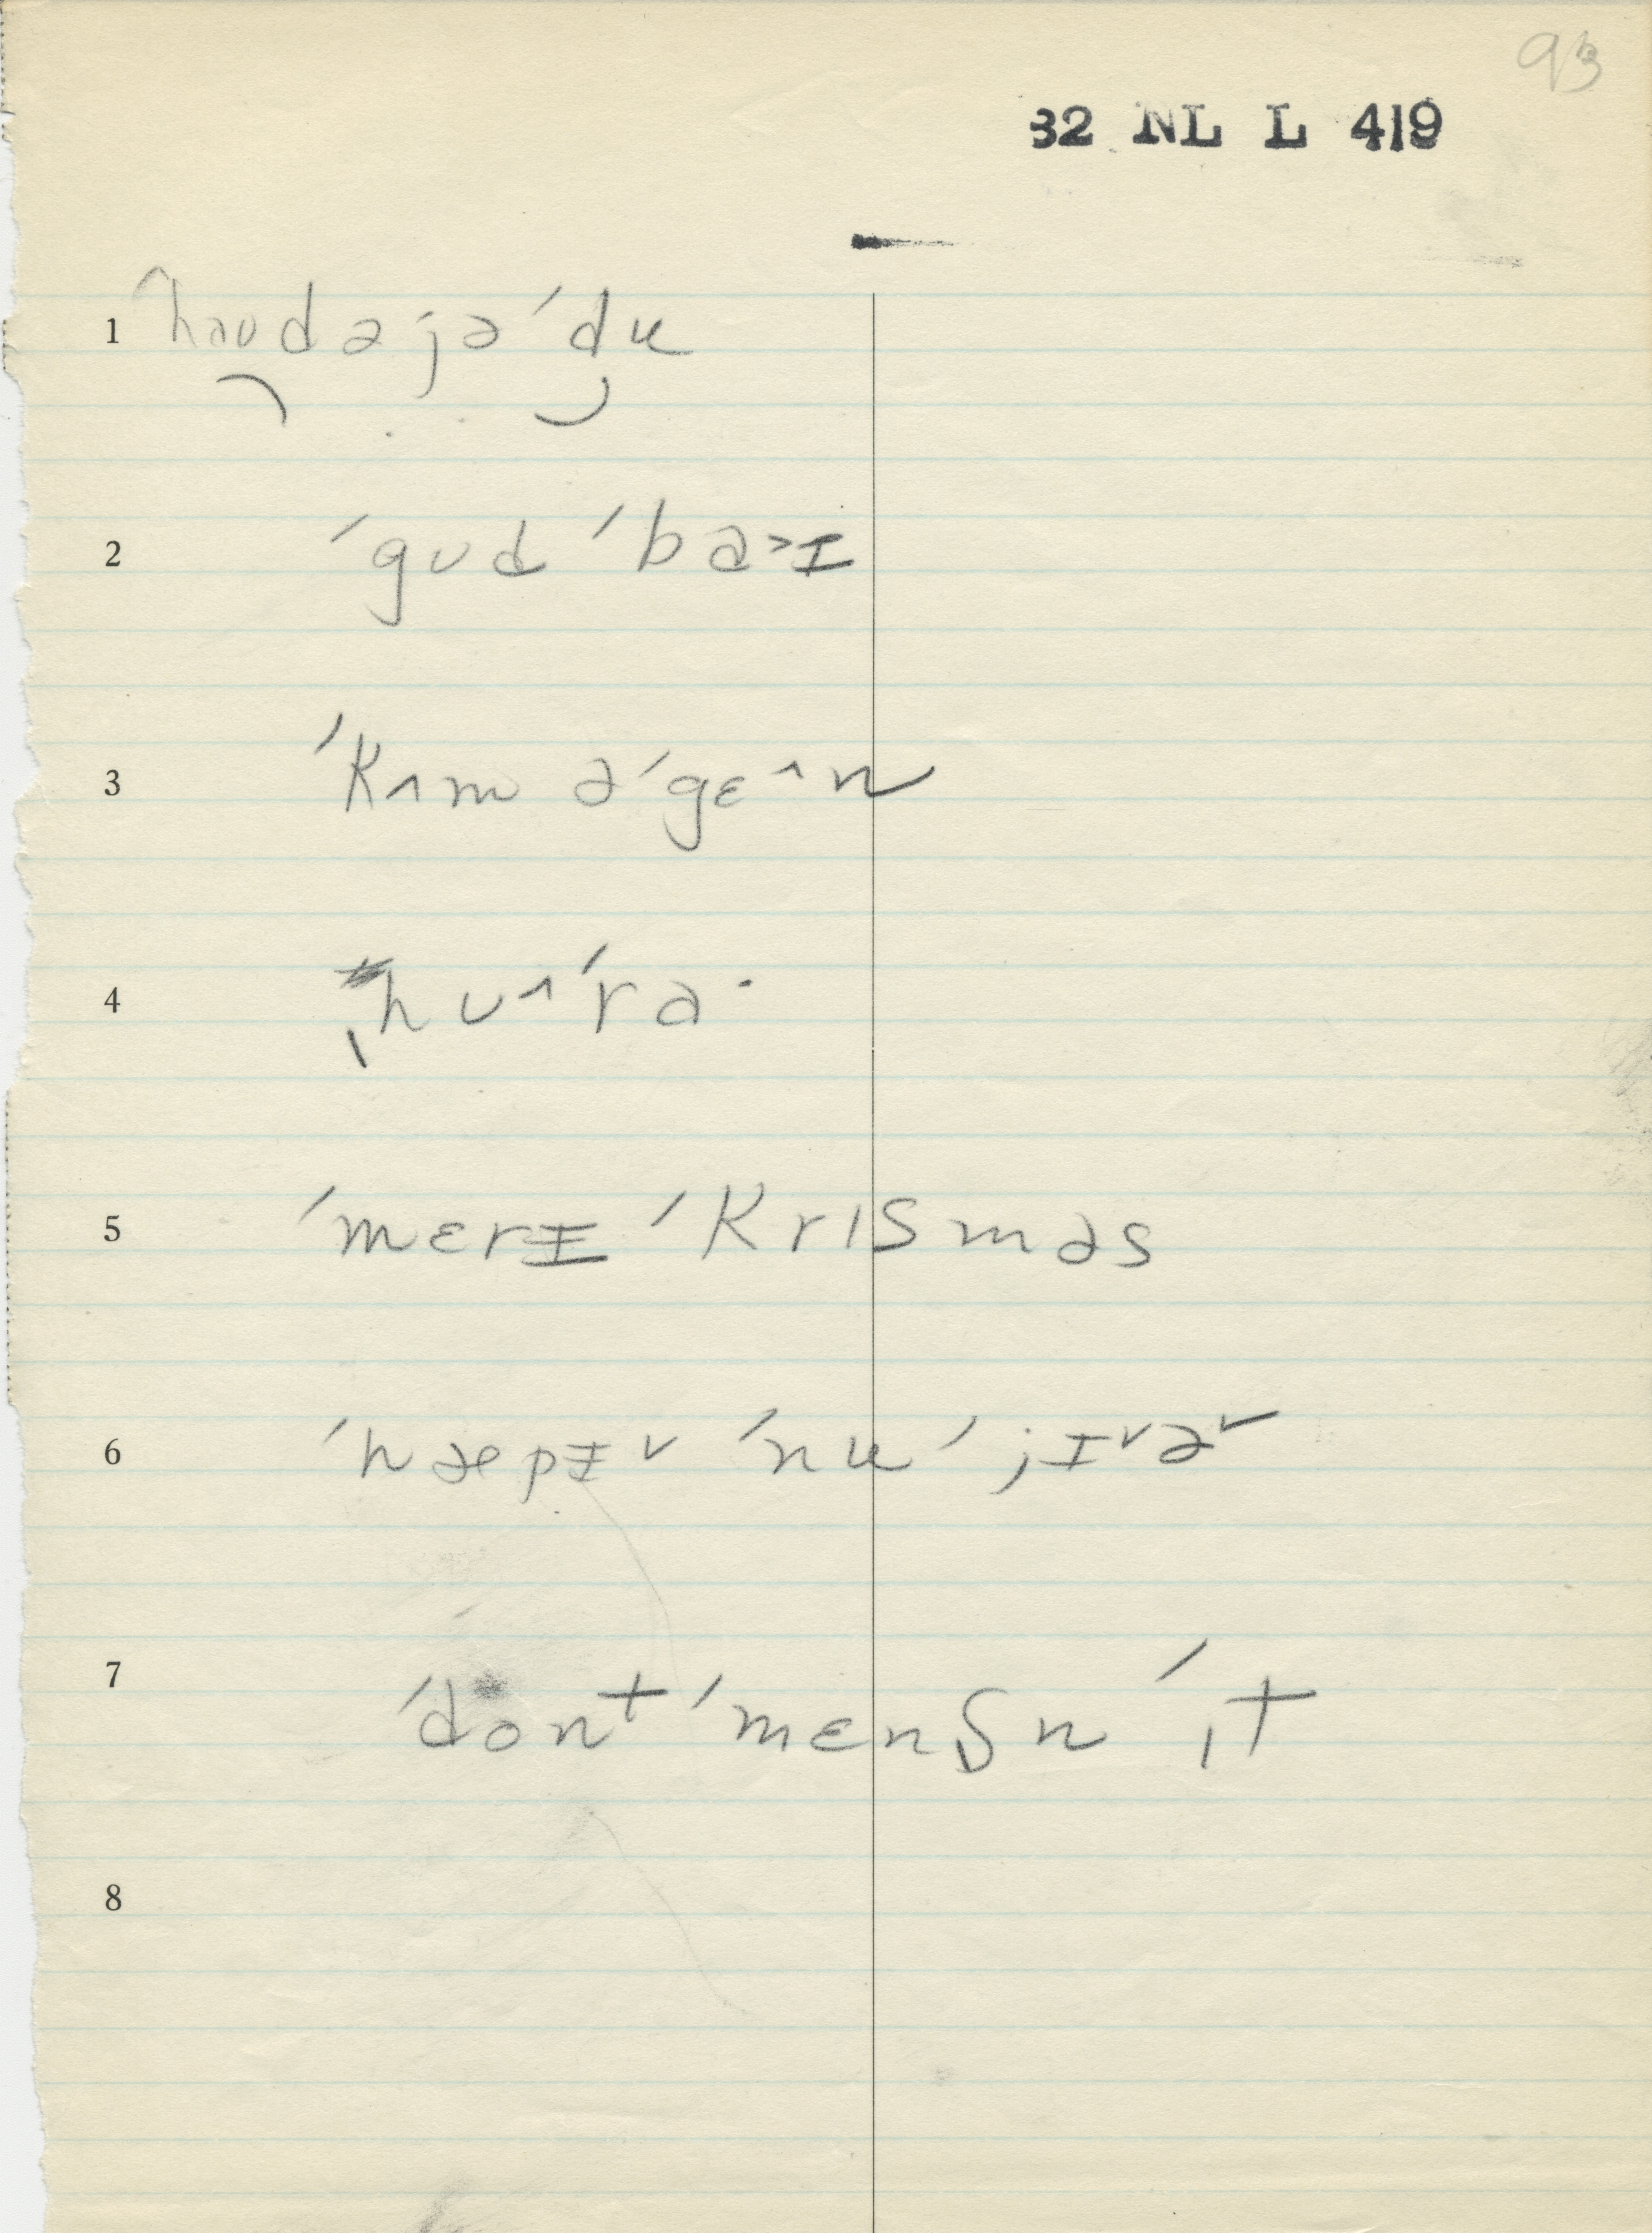 93
32 NL L 419
1 ^haʊdəjə ˈdu
2 ˈgʊd ˈba˃ɪ
3 ˈkʌm əˈgɛ^n
4 ˌhʊ^ˈra·
5 ˈmɛrɪ ˈkrɪsməs
6 ˈhæpɪ˅ ˈnu ˈjɪ˅ə˅
7 ˈdont ˈmɛnʃn̩ ˈɪt
8